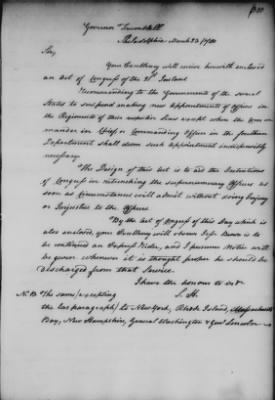 Governor Trumbull
Philadelphia March 23 1780
Sir,
Your Excellency will receive herewith enclosed
an Act of Congress of the 21st Instant
Recommending to the Governments of the several
States to suspend making new appointments of Officers in
the Regiments of their respective Lines except when the Com
mander in Chief or Commanding Officer in the Southern
Department shall deem such appointment indispensibly
necessary.
The Design of this Act is to aid the Intentions
of Congress in retrenching the supernumerary Officers as
soon as Circumstances will admit without doing Injury
or Injustice to the Officers.
By the Act of Congress of this Day which is
also enclosed, your Excellency will observe Jesse Brown is to
be continued an Express Rider, and I presume Notice will
be given whenever it is thought proper he should be
discharged from that Service.
I have the honour to be &c
S. H.
N. B. The same (excepting
the last paragraph) to New York, Rhode Island, Massachusetts
Bay, New Hampshire, General Washington & Genl Lincoln